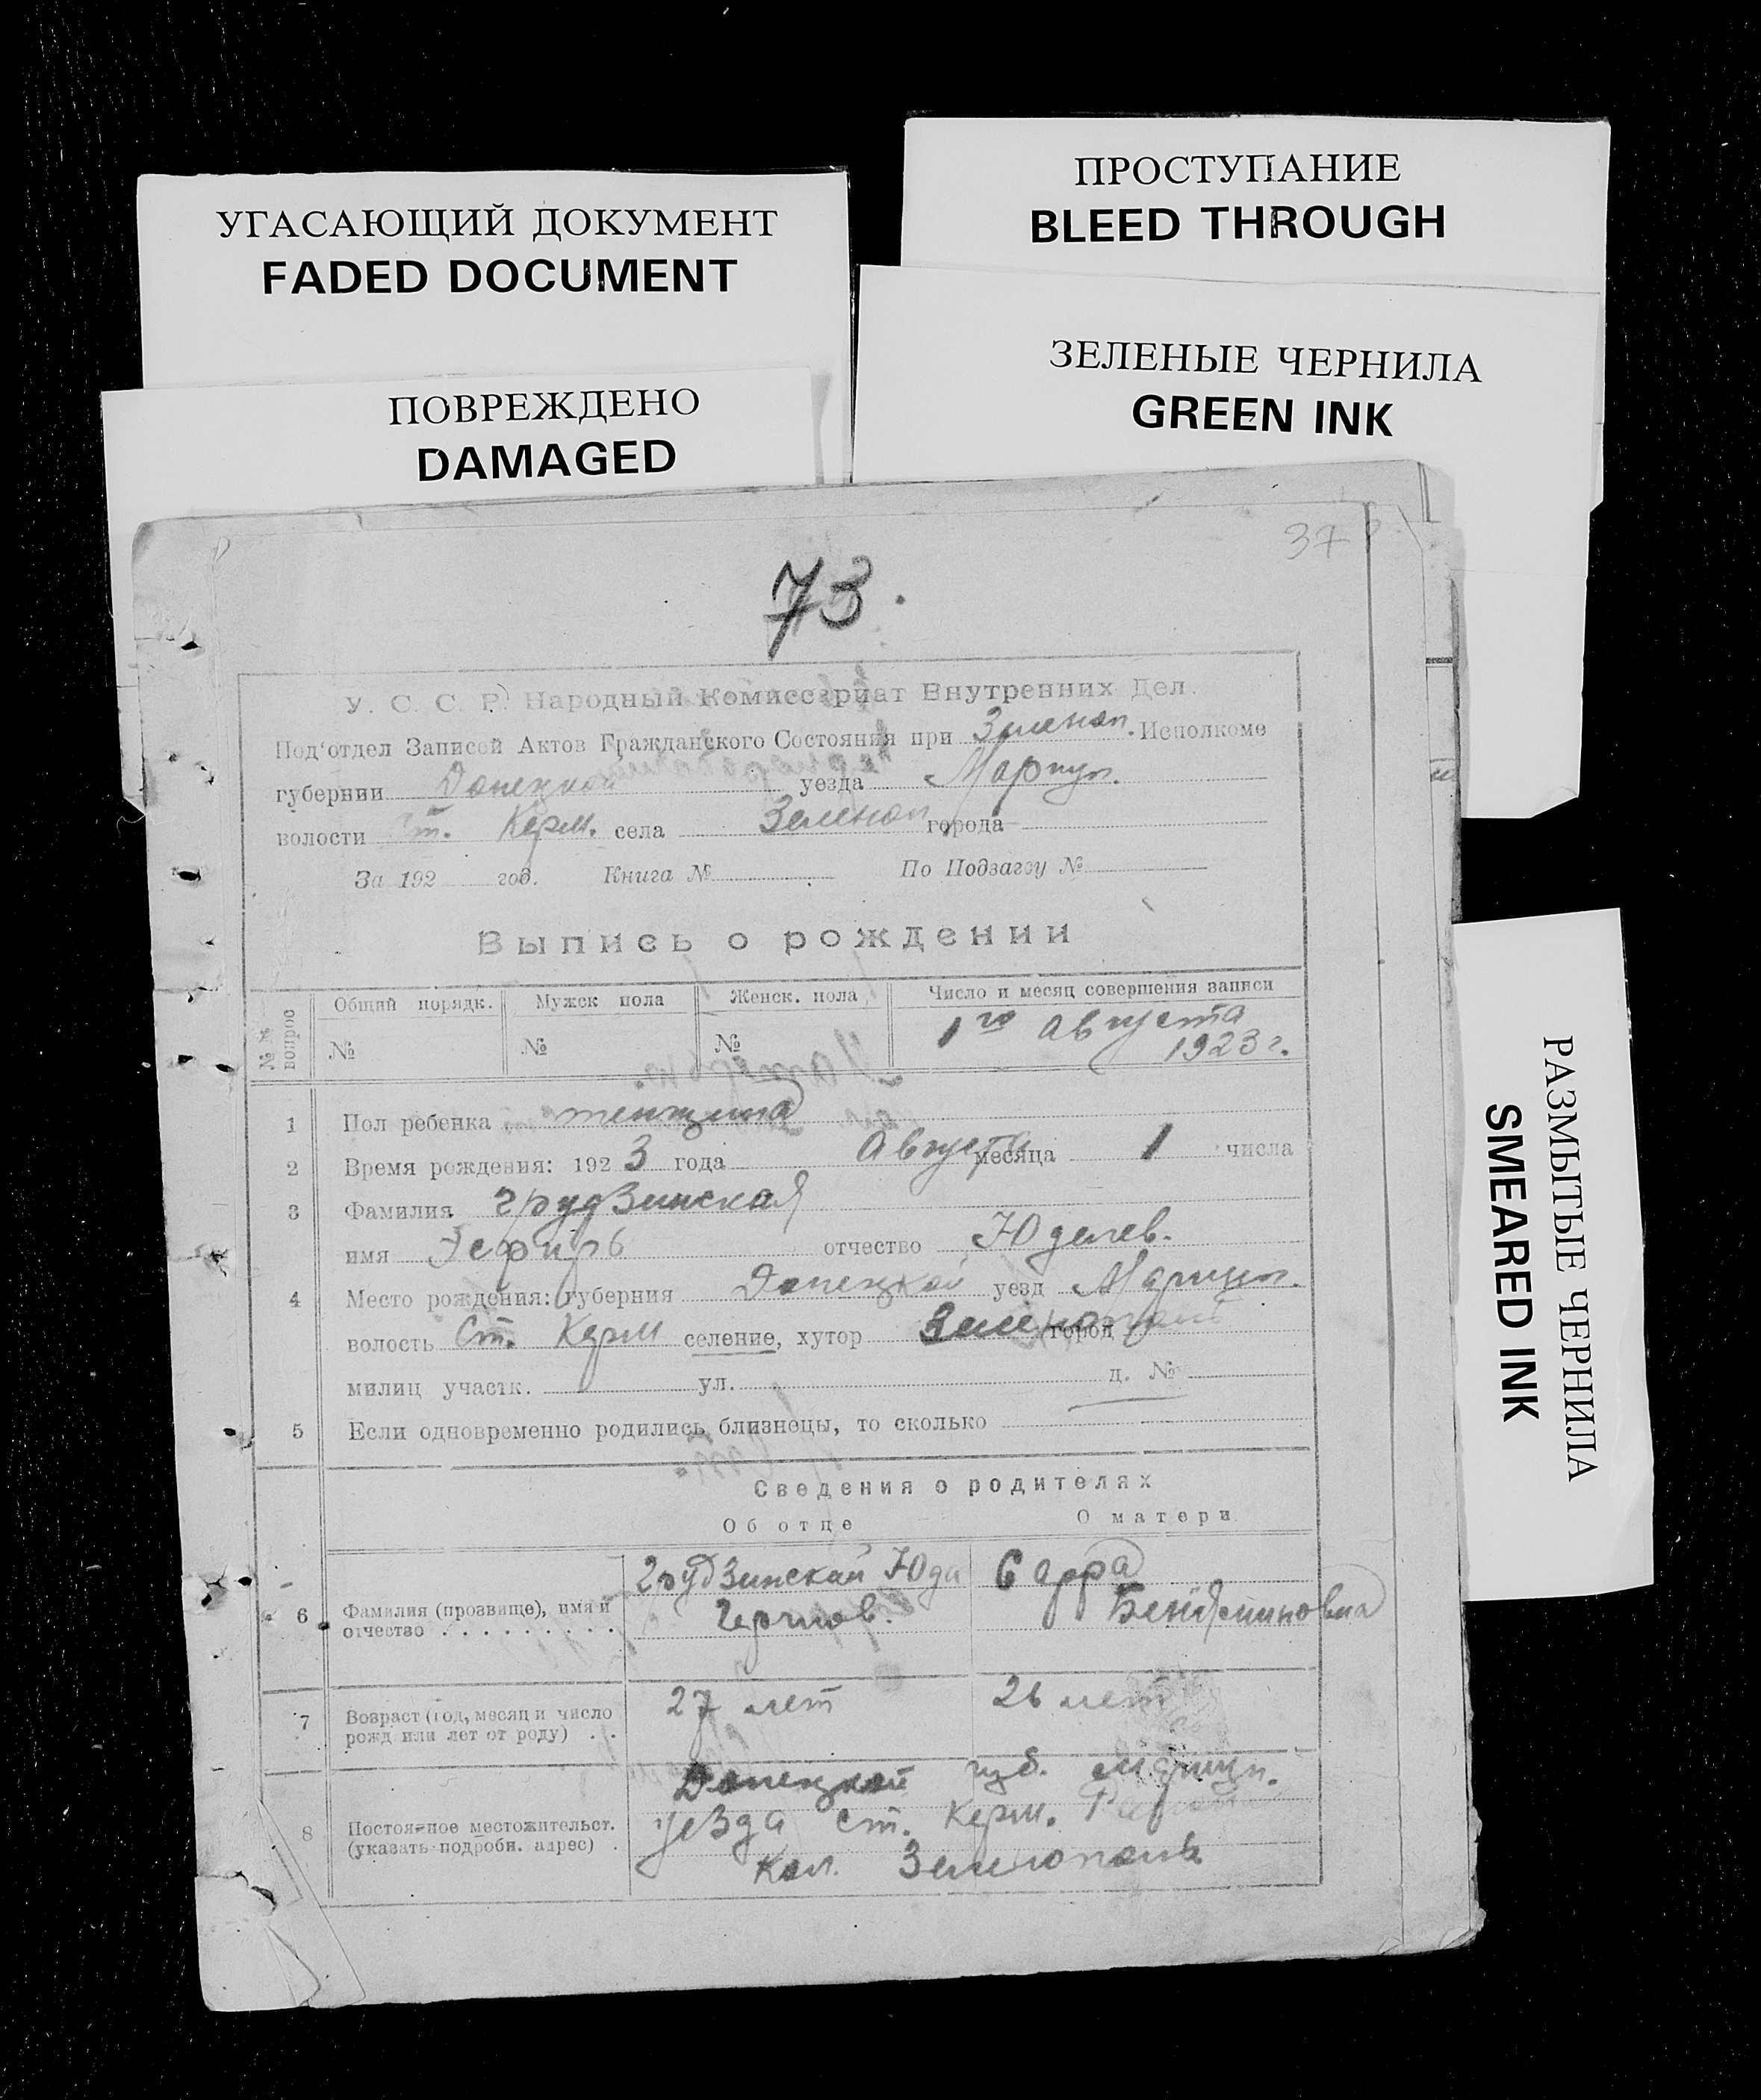 УГАСАЮЩИЙ ДОКУМЕНТ
FADED DOCUMENT
ПРОСТУПАНИЕ
BLEED THROUGH
ЗЕЛЕНЫЕ ЧЕРНИЛА
GREEN INK
ПОВРЕЖДЕНО
DAMAGED
РАЗМЫТЫЕ ЧЕРНИЛА
SMEARED INK
37
73.
У. С. С. Р. Народный Комиссариат Внутренних Дел.
Под'отдел Записей Актов Гражданского Состояния при Зеленоп. Исполкоме
губернии Донецкой уезда Мариуп.
волости Ст. Керм. села Зеленоп города
За 192 год. Книга № По Подзагсу №
Выпись о рождении
№№ вопрос Общий порядк. Мужск пола Женск. пола Число и месяц совершения записи
№ № № 1го Августа
1923 г.
1 Пол ребенка женщина
2 Время рождения: 1923 года Августа месяца 1 числа
3 Фамилия Грудзинская
имя Эсфирь отчество Юделев.
4 Место рождения: губерния Донецкой уезд Мариуп.
волость Ст. Керм селение, хутор Зеленополь город
милиц участк. ул. д. №
5 Если одновременно родились близнецы, то сколько
Сведения о родителях
Об отце О матери
6 Фамилия (прозвище), имя и отчество Грудзинский Юда Сарра
Бенияминовна
7 Возраст (год, месяц и число рожд или лет от роду) 27 лет 26 лет
8 Постоянное местожительст. (указать подробн. адрес) Донецкой губ. Мариуп.
уезда Ст. Керм.
Кол. Зеленополь